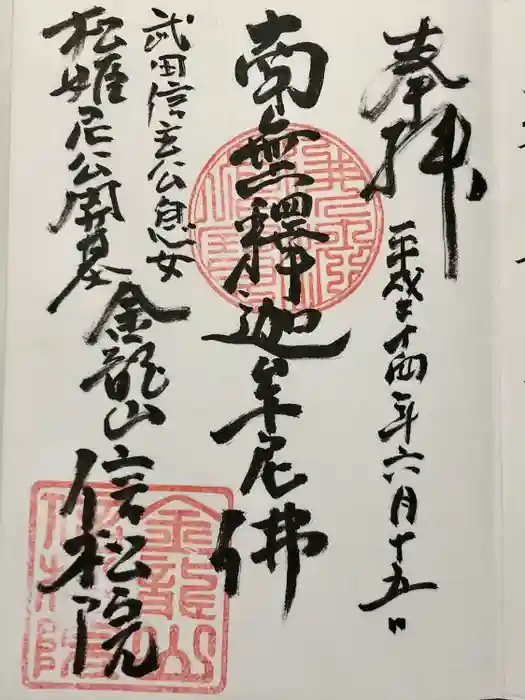 奉拝
平成二十四年六月十五日
南無釋迦牟尼佛
武田信玄公息女
松姫尼公開基
金龍山信松院
金龍山
信松院